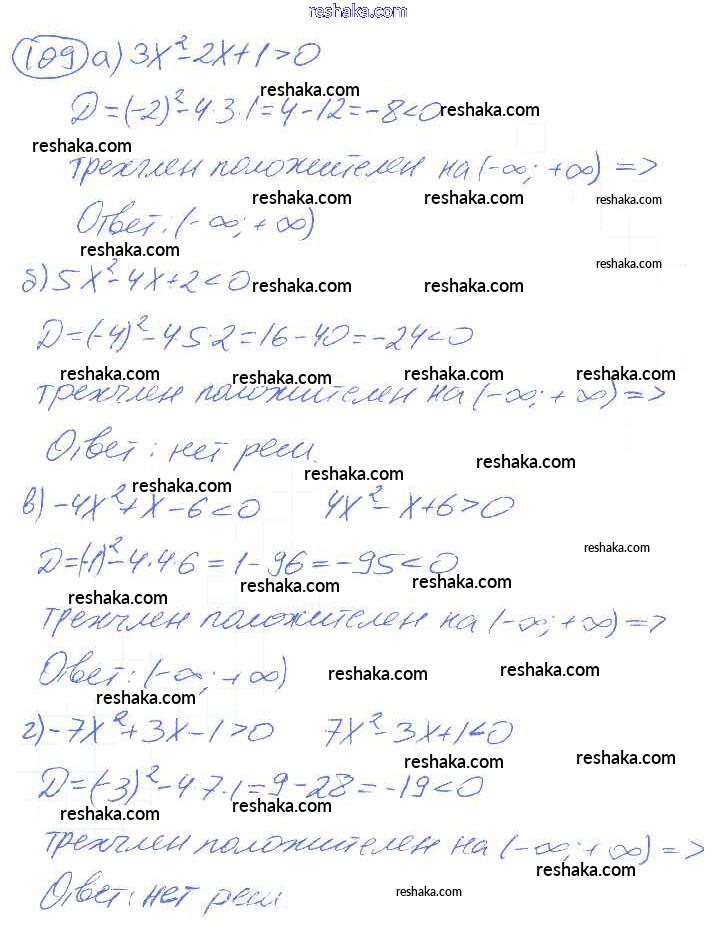 reshaka.com
109 а) 3x²-2x+1>0
reshaka.com
D=(-2)²-4·3·1=4-12=-8<0 reshaka.com
reshaka.com
трехчлен положителен на (-∞; +∞) =>
reshaka.com reshaka.com reshaka.com
Ответ: (-∞; +∞)
reshaka.com
reshaka.com
б) 5x²-4x+2<0 reshaka.com reshaka.com
D=(-4)²-4·5·2=16-40=-24<0
reshaka.com reshaka.com reshaka.com reshaka.com
трехчлен положителен на (-∞; +∞) =>
Ответ: нет реш.
reshaka.com
reshaka.com reshaka.com
в) -4x²+x-6<0 4x²-x+6>0
reshaka.com
D=(-1)²-4·4·6=1-96=-95<0
reshaka.com reshaka.com reshaka.com
трехчлен положителен на (-∞; +∞) =>
Ответ: (-∞; +∞) reshaka.com reshaka.com
reshaka.com
г) -7x²+3x-1>0 7x²-3x+1<0
reshaka.com reshaka.com
D=(-3)²-4·7·1=9-28=-19<0
reshaka.com reshaka.com reshaka.com
трехчлен положителен на (-∞; +∞) =>
reshaka.com
Ответ: нет реш. reshaka.com